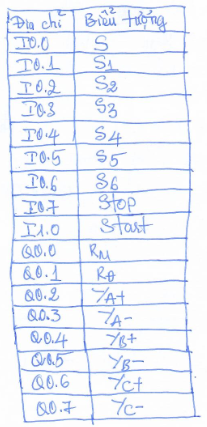 Địa chỉ Biểu tượng
I0.0 S
I0.1 S1
I0.2 S2
I0.3 S3
I0.4 S4
I0.5 S5
I0.6 S6
I0.7 Stop
I1.0 Start
Q0.0 RM
Q0.1 Rθ
Q0.2 YA+
Q0.3 YA-
Q0.4 YB+
Q0.5 YB-
Q0.6 YC+
Q0.7 YC-